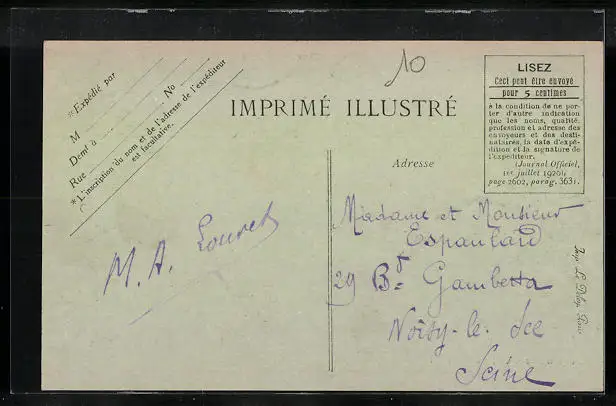 *Expédié par
M
No
Demt à
Rue
*L'inscription du nom et de l'adresse de l'expéditeur
est facultative.
10
IMPRIMÉ ILLUSTRÉ
LISEZ
Ceci peut être envoyé
pour 5 centimes
à la condition de ne por-
ter d'autre indication
que les noms, qualité,
profession et adresse des
envoyeurs et des desti-
nataires, la date d'expé-
dition et la signature de
l'expéditeur.
(Journal Officiel,
1er juillet 1920),
page 2602, parag. 3631.
Adresse
M. A. Louvet
Madame et Monsieur
Espaulard
29 Bd Gambetta
Noisy-le-Sec
Seine
Imp. L. Paris